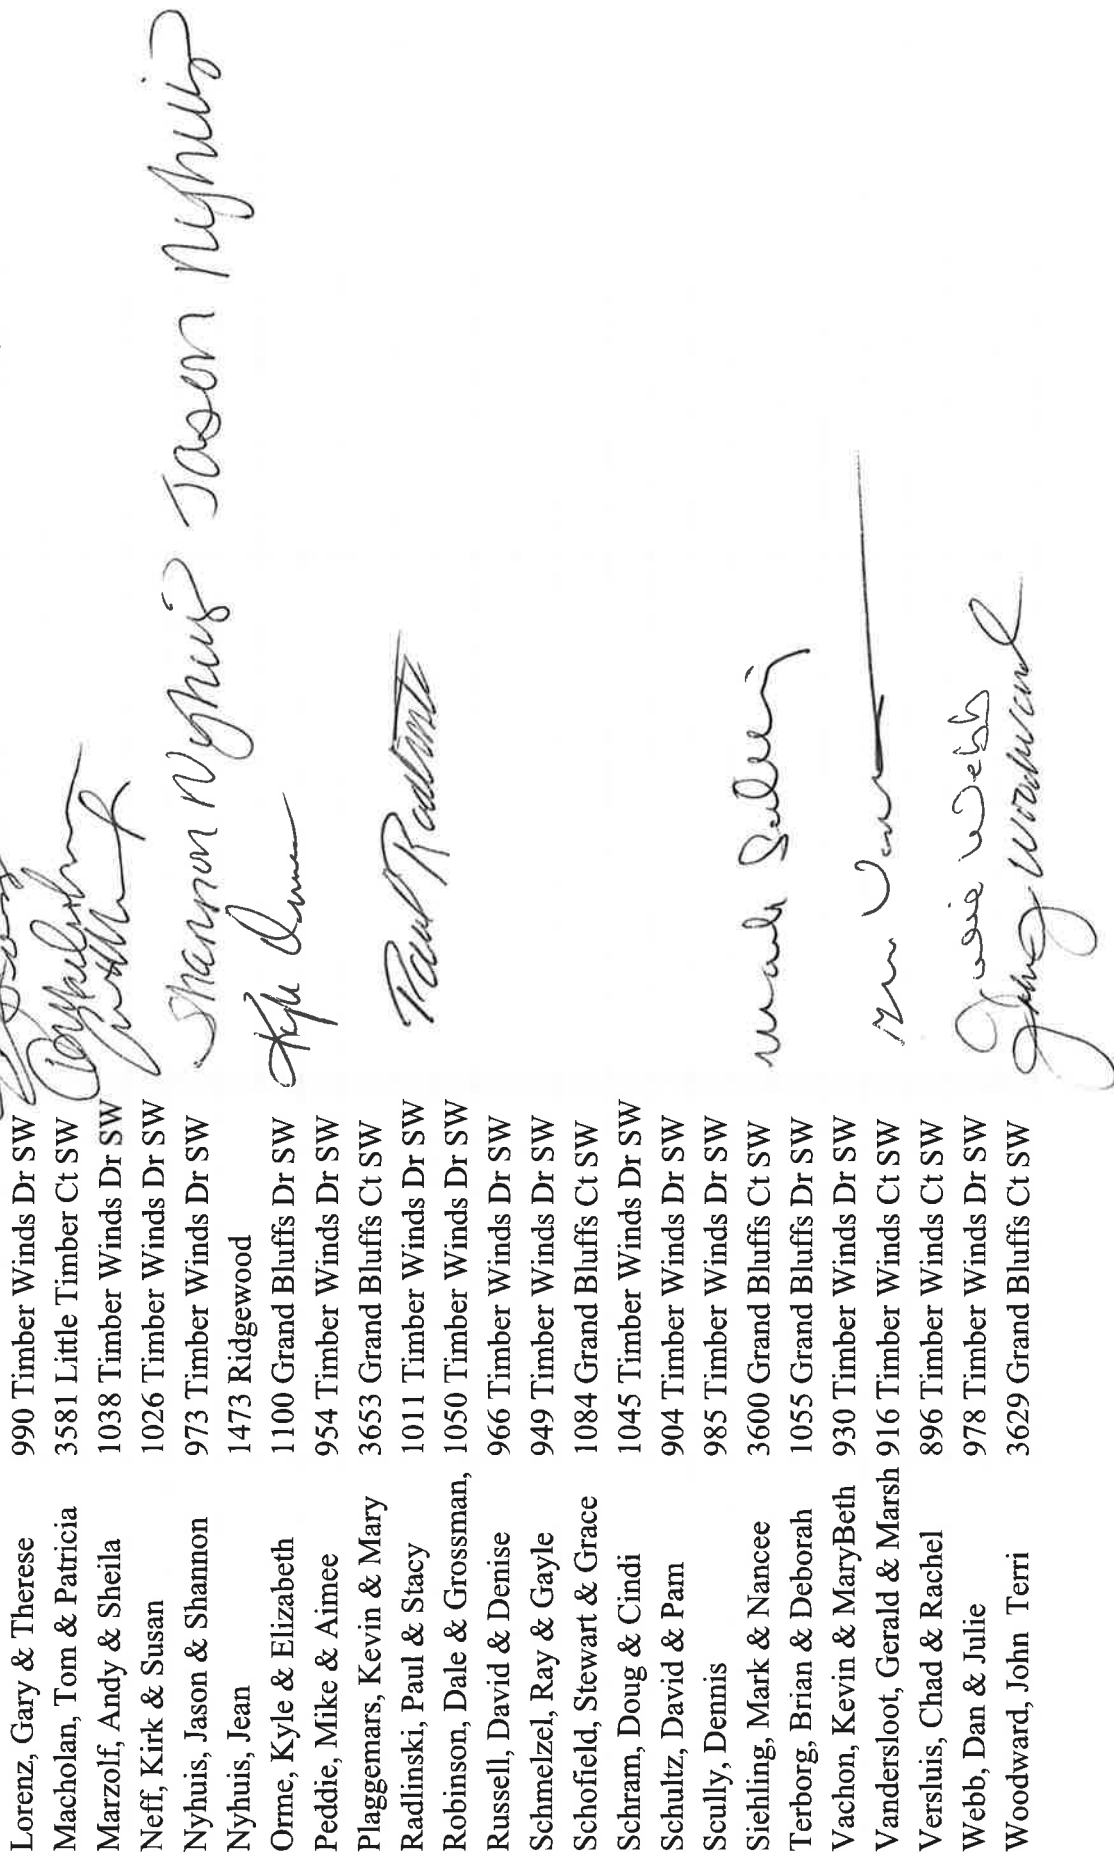 Lorenz, Gary & Therese 990 Timber Winds Dr SW
Macholan, Tom & Patricia 3581 Little Timber Ct SW
Marzolf, Andy & Sheila 1038 Timber Winds Dr SW
Neff, Kirk & Susan 1026 Timber Winds Dr SW
Nyhuis, Jason & Shannon 973 Timber Winds Dr SW Shannon Nyhuis Jason Nyhuis
Nyhuis, Jean 1473 Ridgewood
Orme, Kyle & Elizabeth 1100 Grand Bluffs Dr SW Kyle Orme
Peddie, Mike & Aimee 954 Timber Winds Dr SW
Plaggemars, Kevin & Mary 3653 Grand Bluffs Ct SW
Radlinski, Paul & Stacy 1011 Timber Winds Dr SW Paul Radlinski
Robinson, Dale & Grossman, 1050 Timber Winds Dr SW
Russell, David & Denise 966 Timber Winds Dr SW
Schmelzel, Ray & Gayle 949 Timber Winds Dr SW
Schofield, Stewart & Grace 1084 Grand Bluffs Ct SW
Schram, Doug & Cindi 1045 Timber Winds Dr SW
Schultz, David & Pam 904 Timber Winds Dr SW
Scully, Dennis 985 Timber Winds Dr SW
Siehling, Mark & Nancee 3600 Grand Bluffs Ct SW Mark Siehling
Terborg, Brian & Deborah 1055 Grand Bluffs Dr SW
Vachon, Kevin & MaryBeth 930 Timber Winds Dr SW
Vandersloot, Gerald & Marsh 916 Timber Winds Ct SW
Versluis, Chad & Rachel 896 Timber Winds Ct SW
Webb, Dan & Julie 978 Timber Winds Dr SW Julie Webb
Woodward, John Terri 3629 Grand Bluffs Ct SW John Woodward